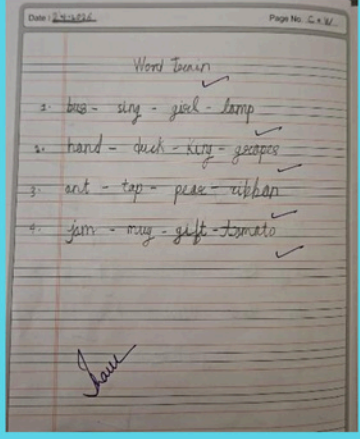 Date : 2-4-2026 Page No. C.W.
Word Train
1. bus - sing - girl - lamp
2. hand - duck - king - grapes
3. ant - tap - pear - ribbon
4. jam - mug - gift - tomato